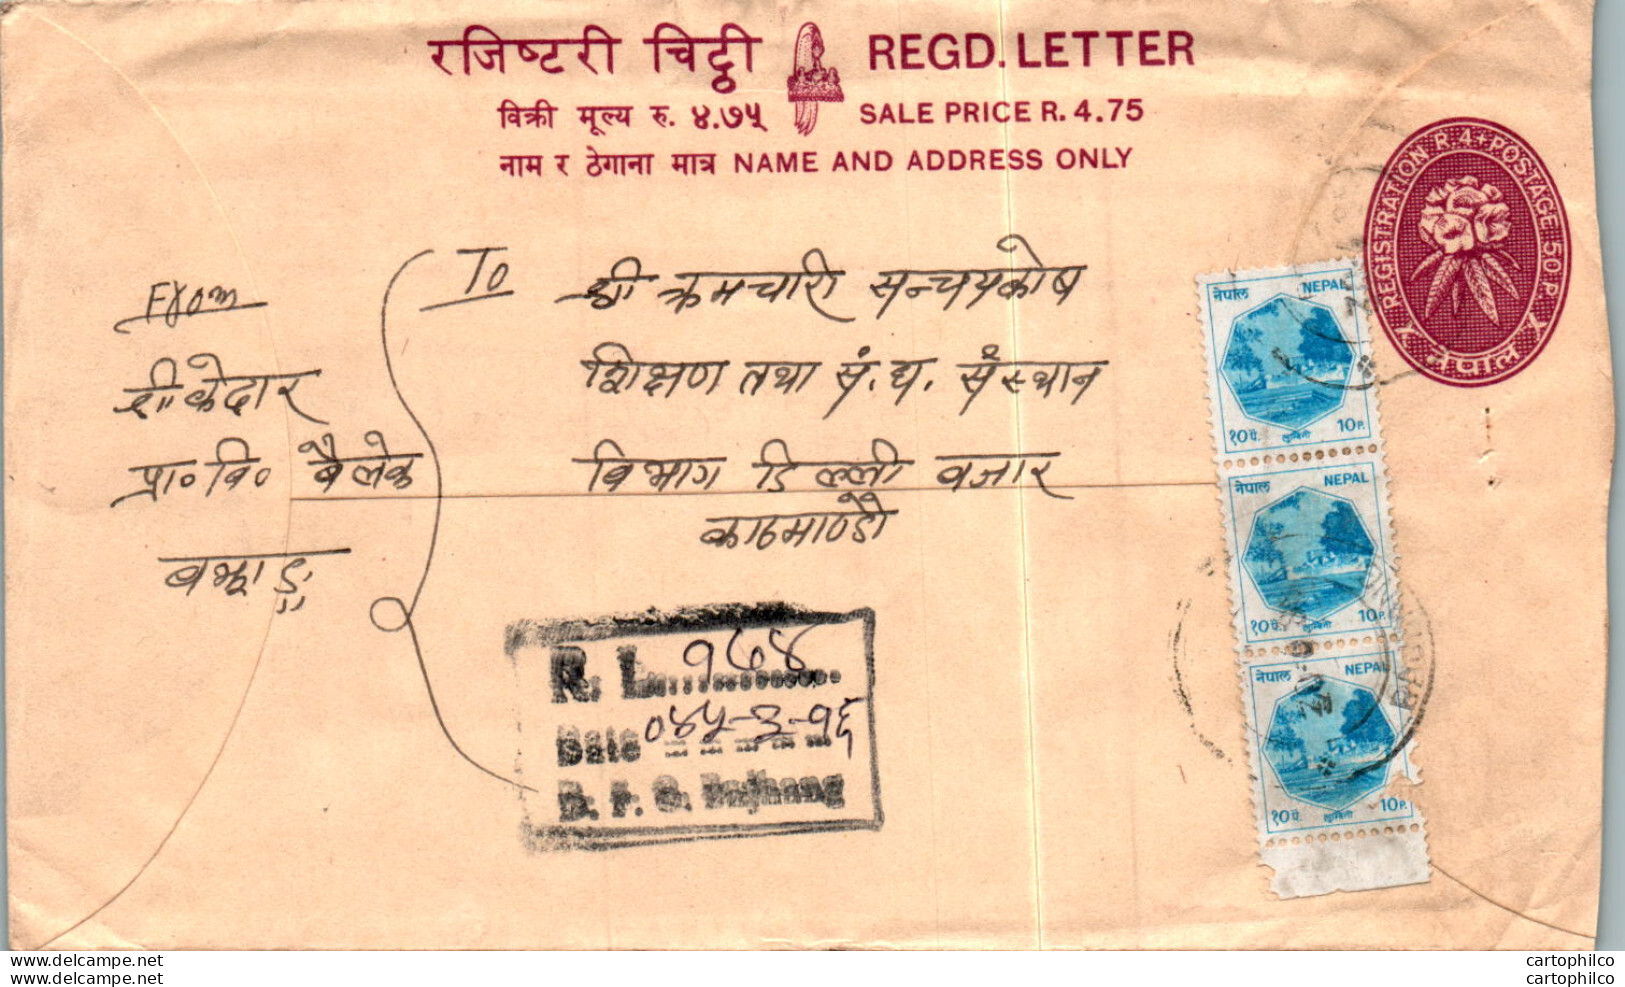 रजिष्टरी चिट्ठी REGD. LETTER
विक्री मूल्य रु. ४.७५ SALE PRICE R. 4.75
नाम र ठेगाना मात्र NAME AND ADDRESS ONLY
REGISTRATION R.4+POSTAGE 50 P.
नेपाल
From
श्री केदार
प्रा० वि० बैलेक
बझाङ
To
श्री क्रमचारी सन्चयकोष
शिक्षण तथा सं.घ. संस्थान
विभाग डिल्ली वजार
काठमाण्डौ
नेपाल NEPAL
१० पै. लुम्बिनी 10 P.
नेपाल NEPAL
१० पै. लुम्बिनी 10 P.
नेपाल NEPAL
१० पै. लुम्बिनी 10 P.
R. L. ९६४
Date ०४५-३-१६
Bajhang
delcampe.net
cartophilco
delcampe.net
cartophilco